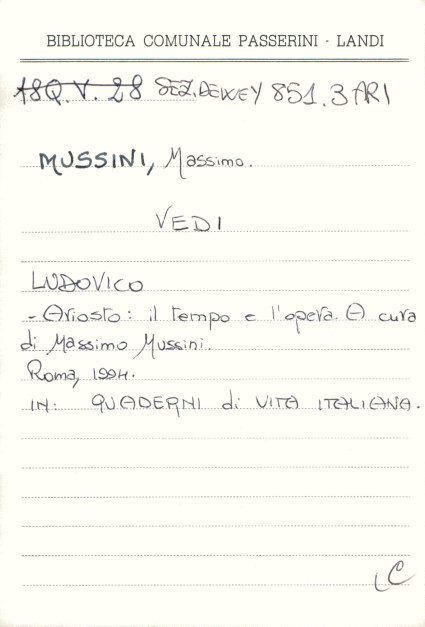 BIBLIOTECA COMUNALE PASSERINI - LANDI
18Q.V.28 SEZ. DEWEY 851.3 ARI
MUSSINI, Massimo.
VEDI
LUDOVICO
- Ariosto: il tempo e l'opera. A cura
di Massimo Mussini.
Roma, 1994.
IN: QUADERNI di VITA ITALIANA.